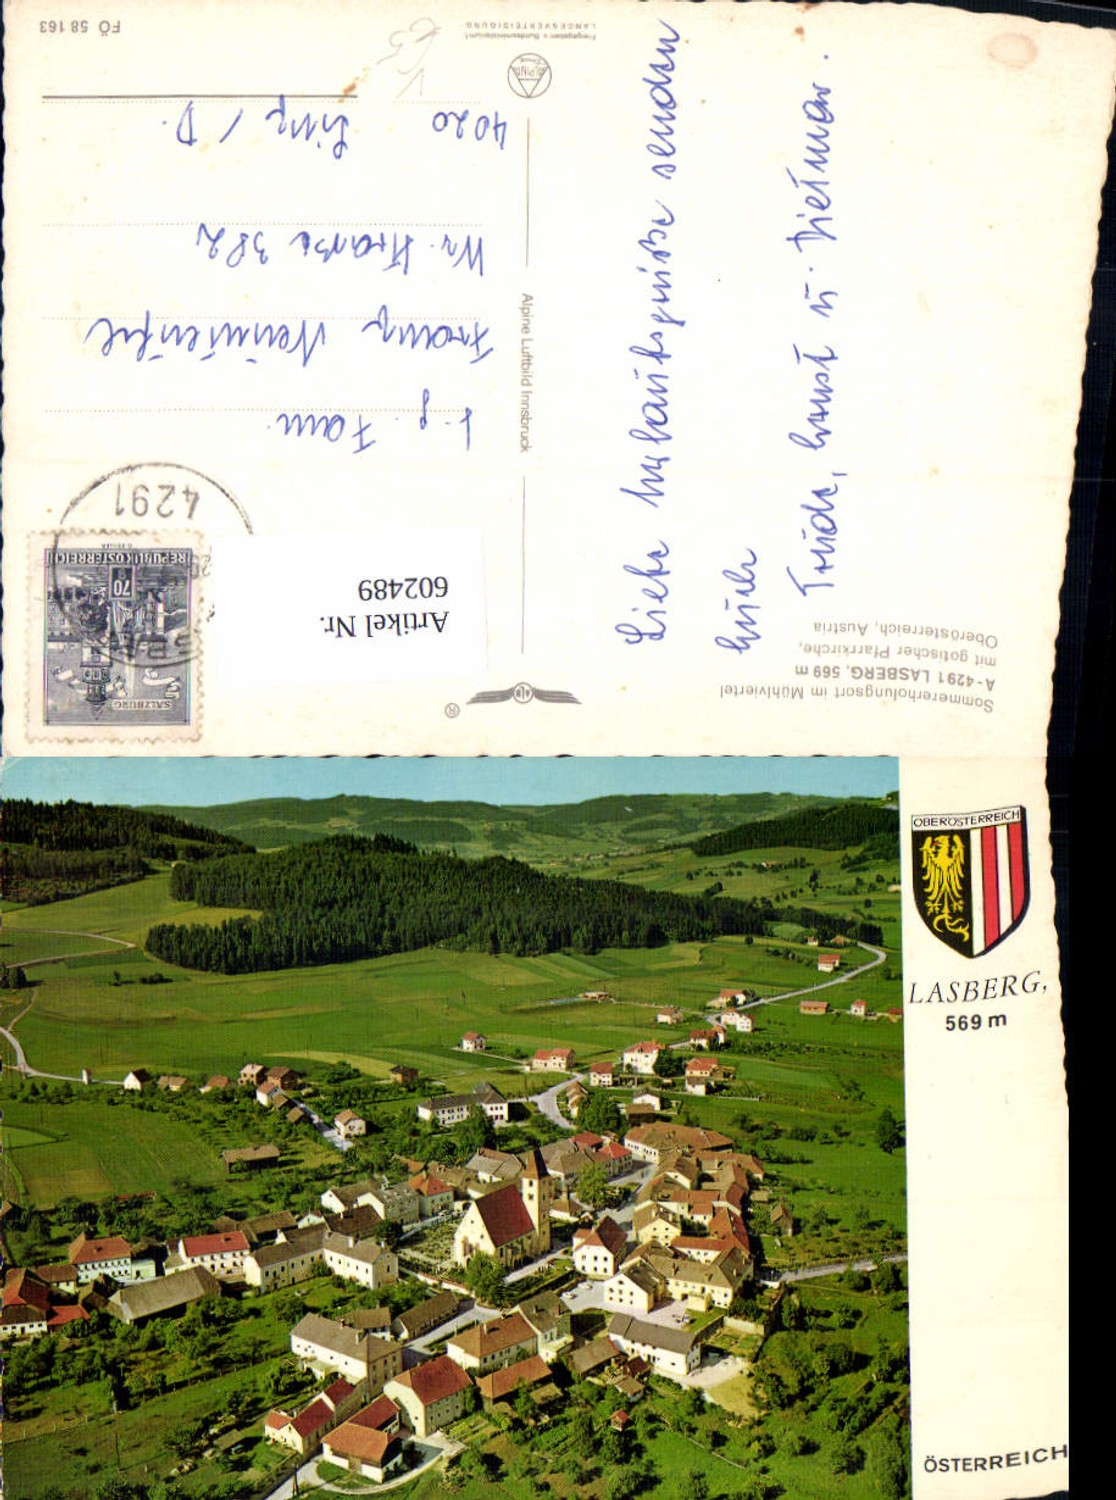 Sommererholungsort im Mühlviertel
A-4291 LASBERG, 569 m
mit gotischer Pfarrkirche,
Oberösterreich, Austria
Liebe Urlaubsgrüße senden
Euch
Trude, Ernst u. Dietmar.
®
Alpine Luftbild Innsbruck
ALPINE
Freigegeben v. Bundesministerium f.
LANDESVERTEIDIGUNG
FÖ 58 163
Artikel Nr.
602489
SALZBURG
70
REPUBLIK ÖSTERREICH
4291
Fam.
Franz
Wr. Straße 382
4020 Linz / D.
OBERÖSTERREICH
LASBERG,
569 m
ÖSTERREICH